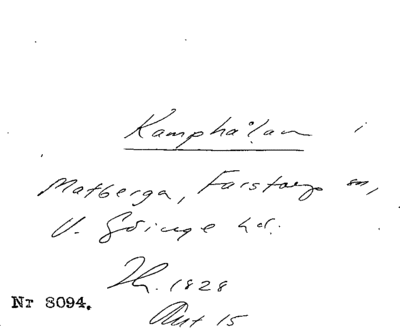 Kamphålan i
Matberga, Farstorp sn,
V. Göinge hd.
Th. 1828
Nr 8094.
Ant 15